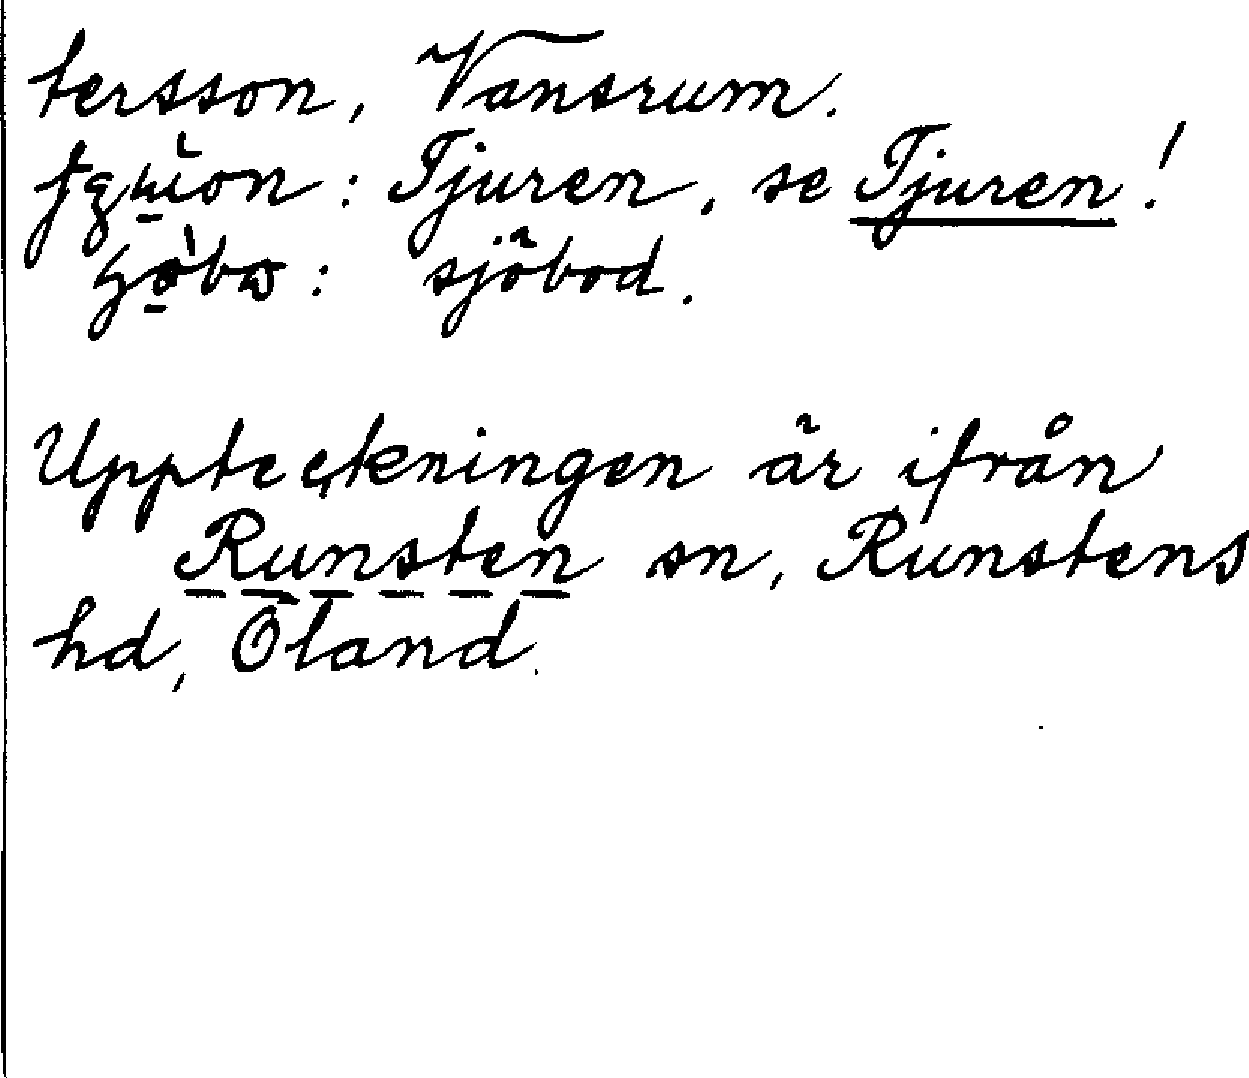 tersson, Vansrum.
: Tjuren, se Tjuren!
: sjöbod.
Uppteckningen är ifrån
Runsten sn, Runstens
hd, Öland.